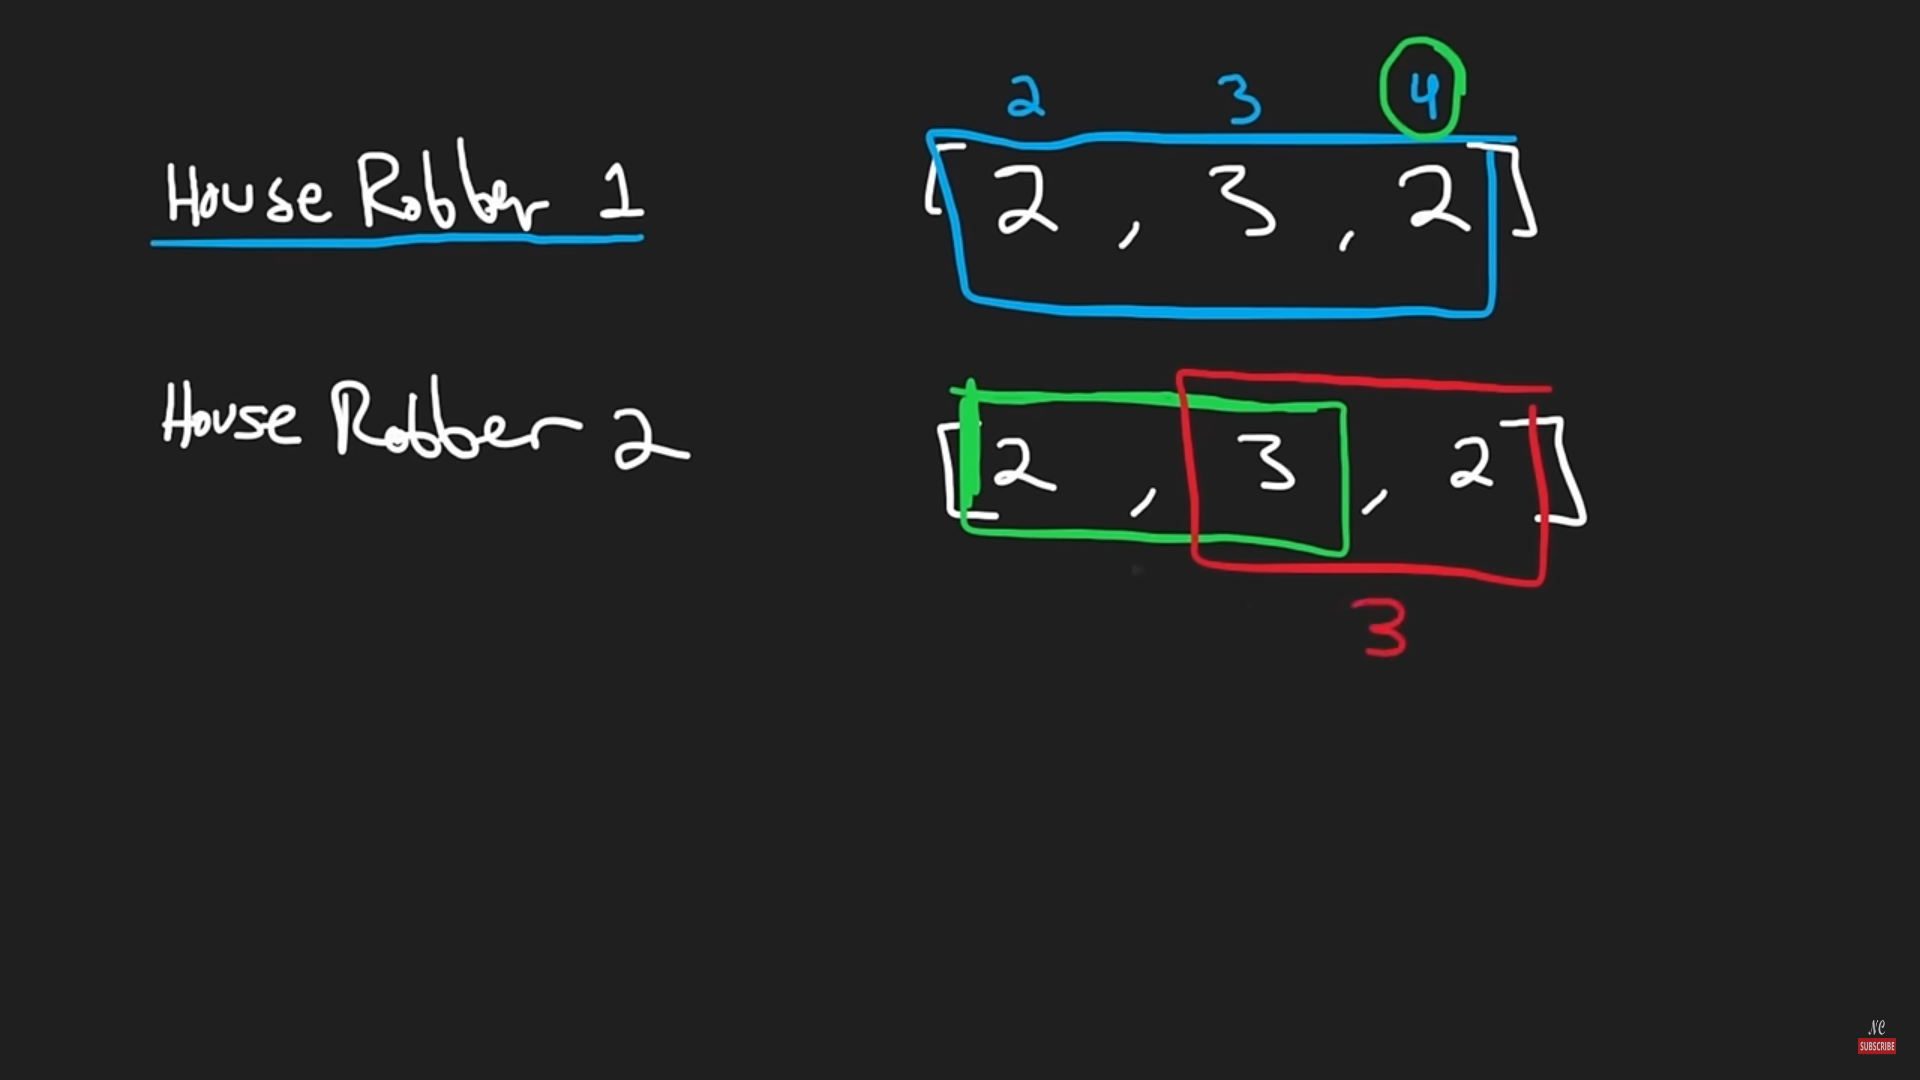 2 3 4
House Robber 1 [ 2 , 3 , 2 ]
House Robber 2 [ 2 , 3 , 2 ]
3
NC
SUBSCRIBE